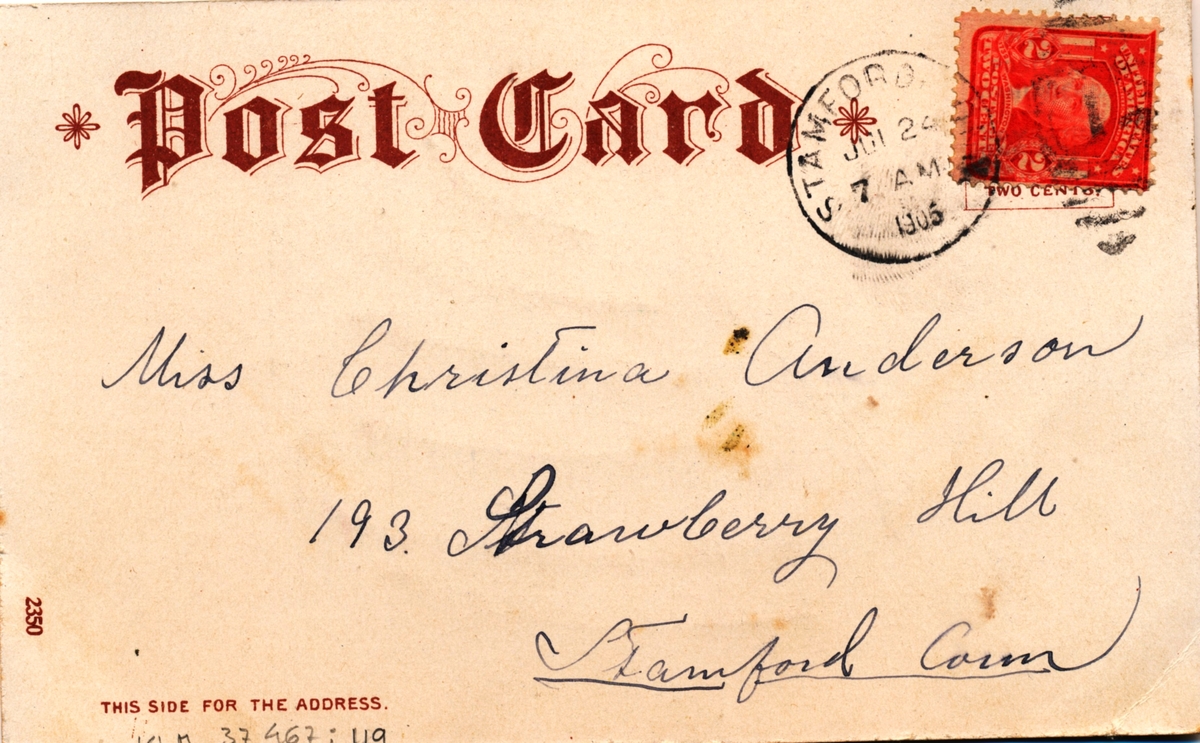 Post Card
STAMFORD,
JUL 24
7 AM
1905
2
2
TWO CENTS.
Miss Christina Anderson
193. Strawberry Hill
Stamford Conn
2350
THIS SIDE FOR THE ADDRESS.
37 467: 119